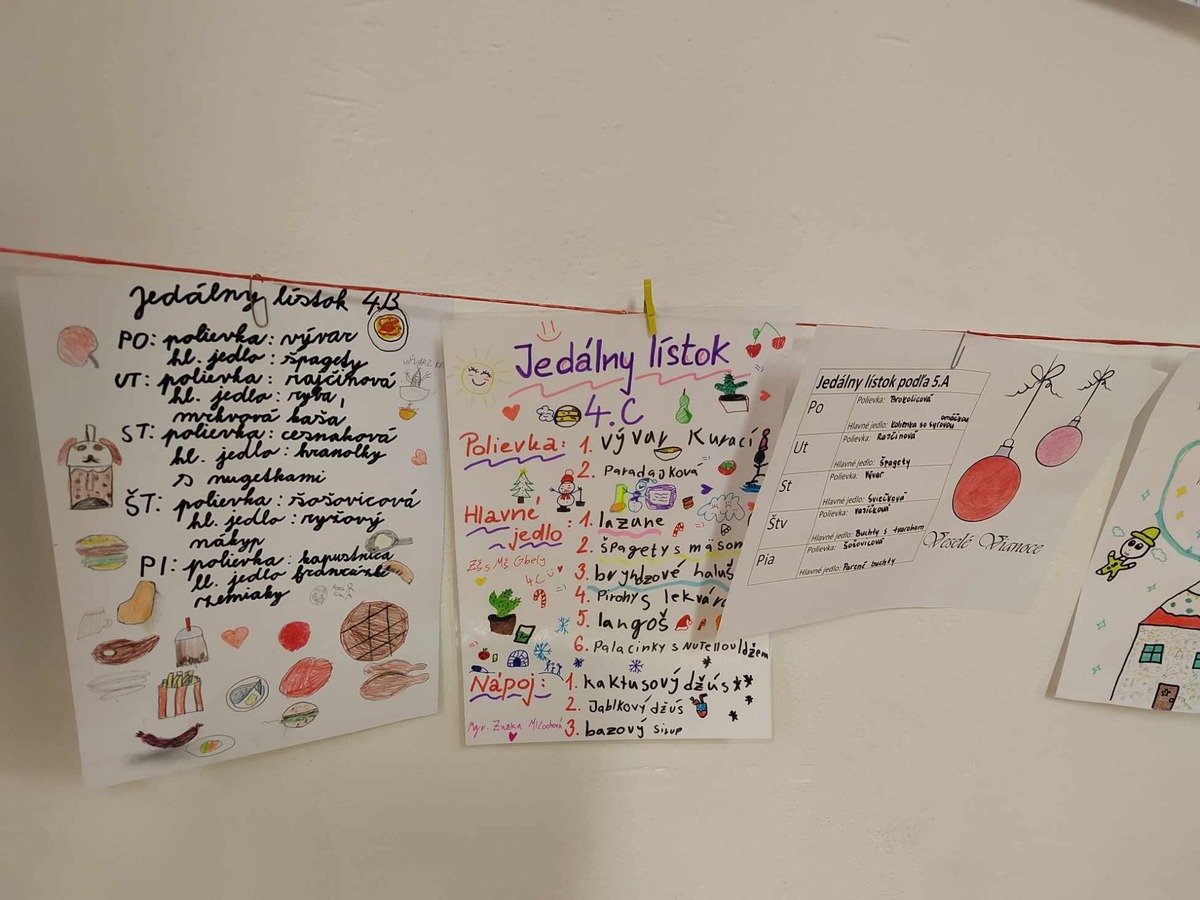 Jedálny lístok 4.B
PO: polievka: vývar
hl. jedlo: špagety
UT: polievka: rajčinová
hl. jedlo: ryba,
mrkvová kaša
ST: polievka: cesnaková
hl. jedlo: hranolky
s nugetkami
ŠT: polievka: šošovicová
hl. jedlo: ryžový
nákyp
PI: polievka: kapustnica
hl. jedlo francúzské
zemiaky
Jedálny lístok
4.C
Polievka: 1. Vývar Kurací
2. Paradajková
Hlavné
jedlo: 1. lazane
2. Špagety s mäsom
3. bryndzové haluš
4. Pirohy s lekvár
5. langoš
6. Palacinky s Nutellou/džem
ZŠ s MŠ Gbely
4.C
Nápoj: 1. kaktusový džús
2. Jablkový džús
3. bazový Sirup
Mgr. Zuzka
Jedálny lístok podľa 5.A
Po
Polievka: Brokolicová
Hlavné jedlo: Kolienka so syrovou
omáčkou
Ut
Polievka: Rajčinová
Hlavné jedlo: Špagety
St
Polievka: Vývar
Hlavné jedlo: Sviečková
Štv
Polievka:
Hlavné jedlo: Buchty s tvarohom
Pia
Polievka: Šošovicová
Hlavné jedlo: Parené buchty
Veselé Vianoce